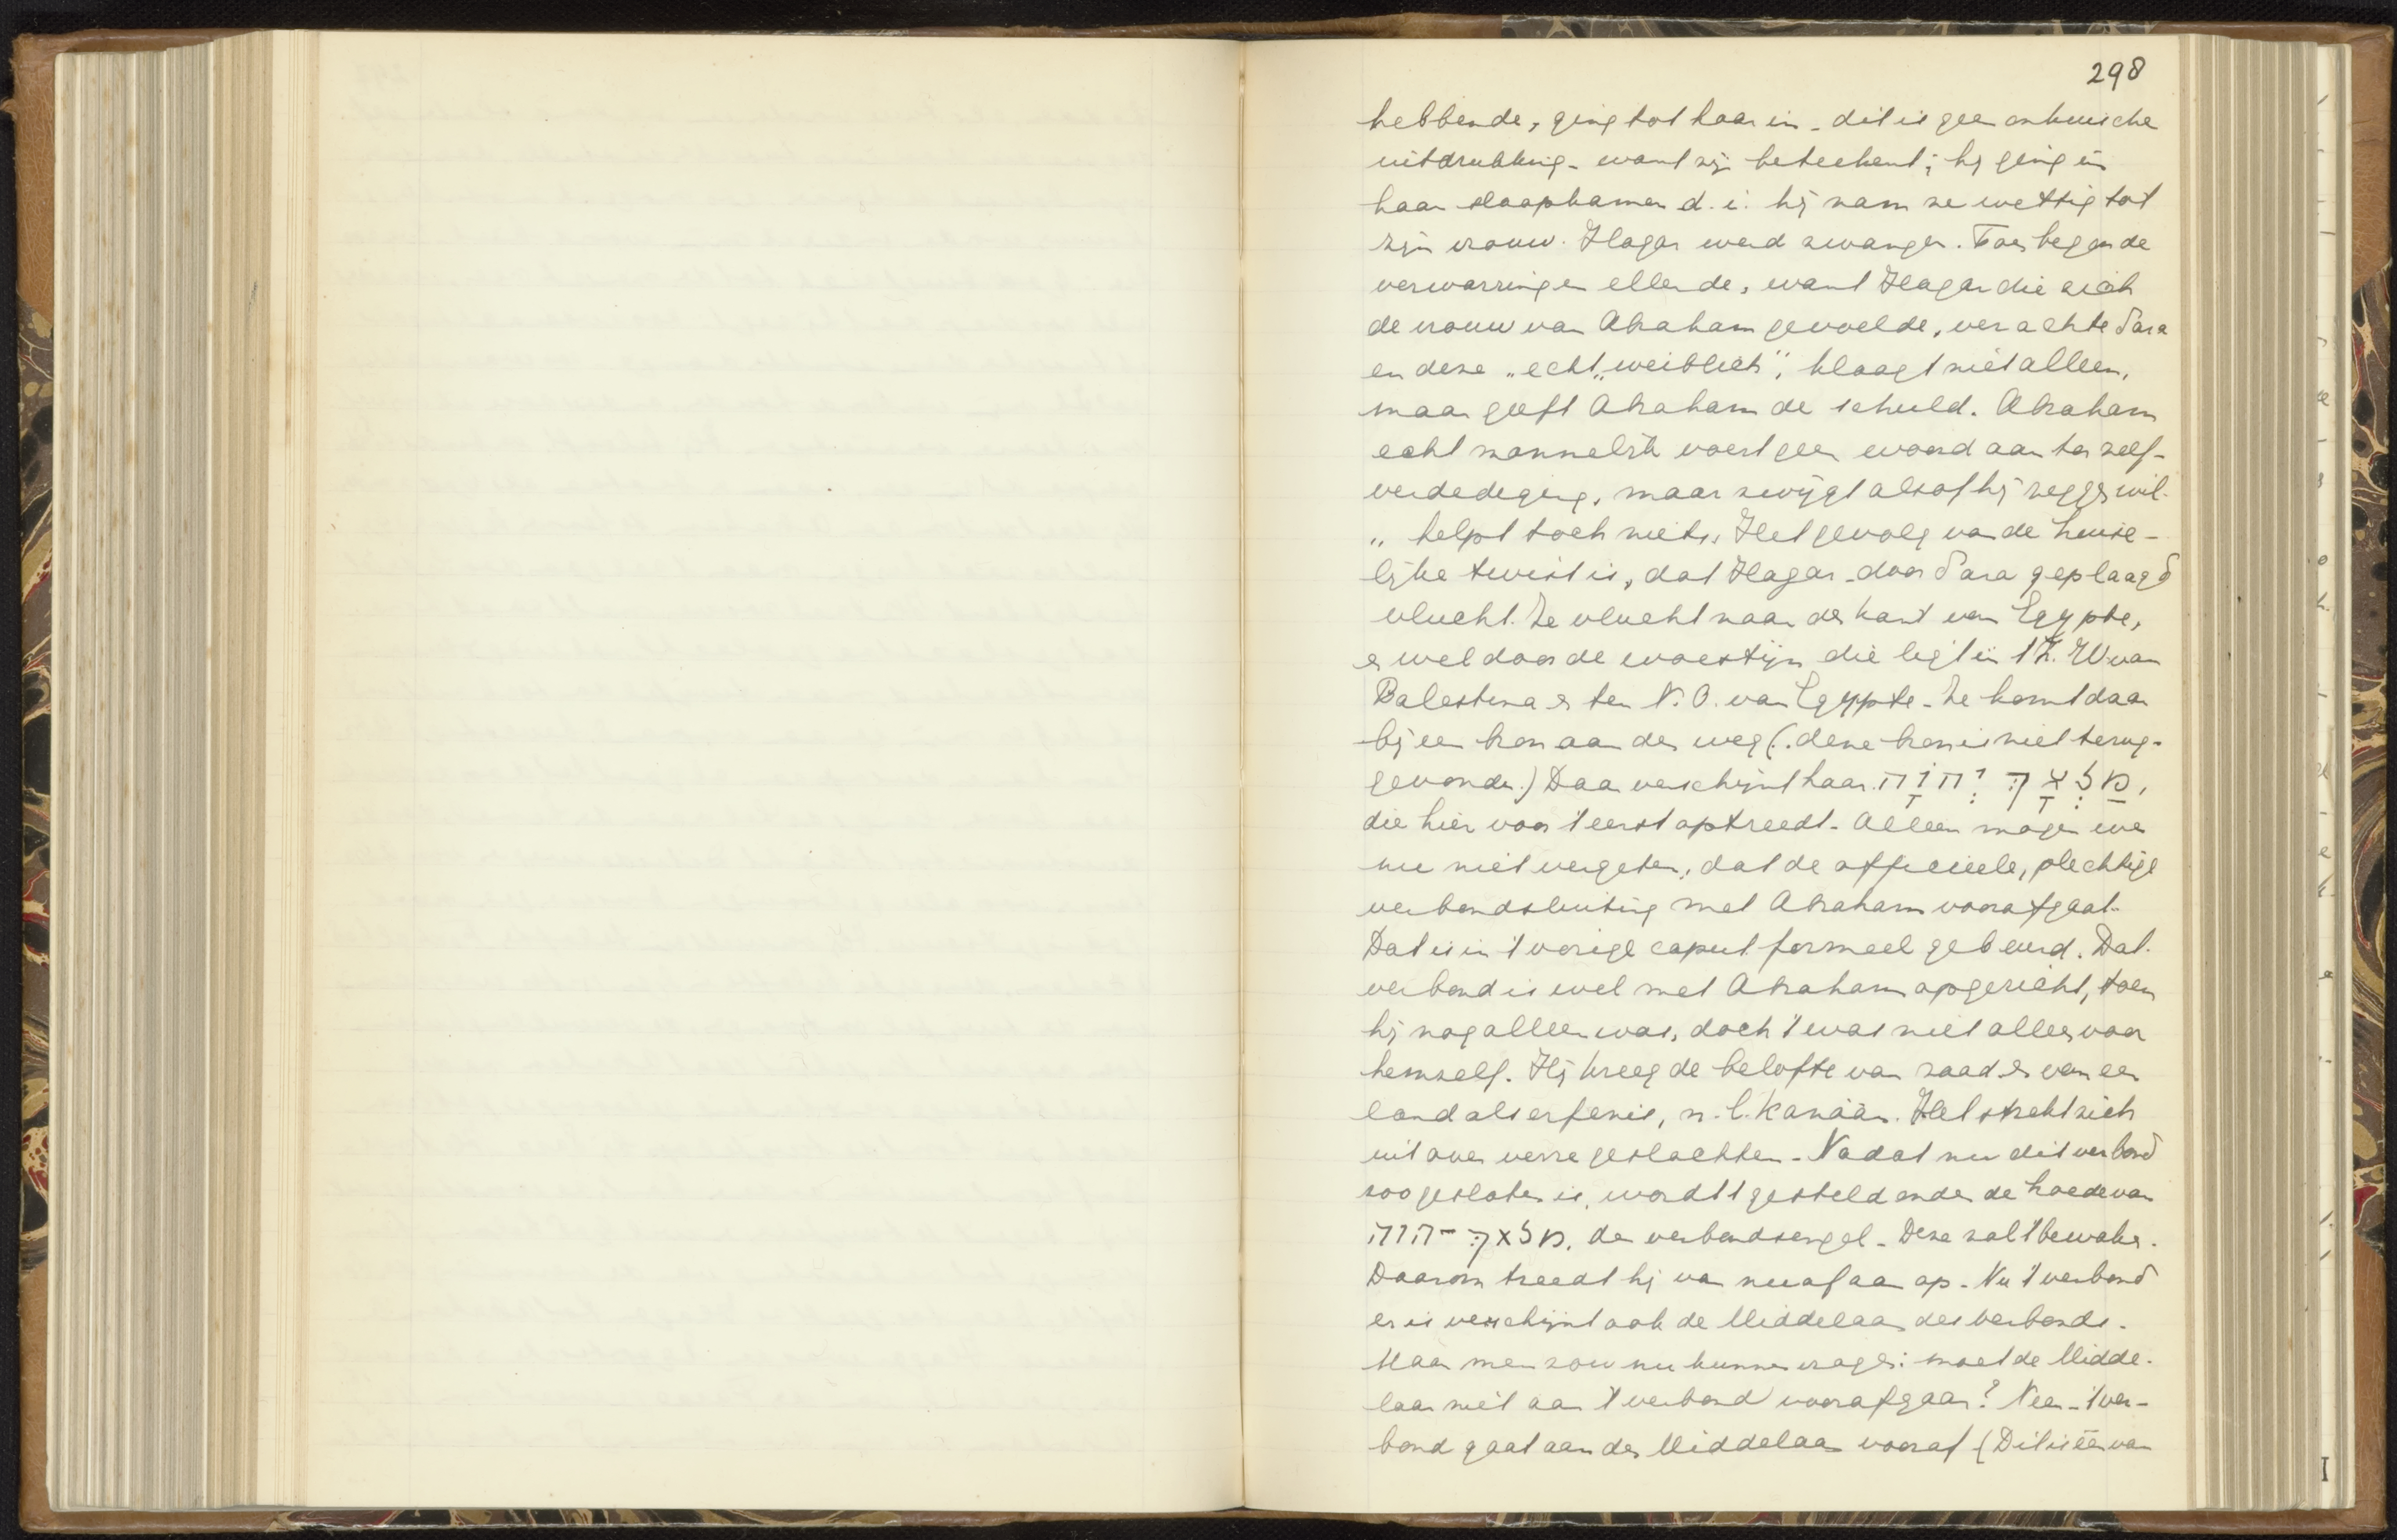 298
hebbende, ging tot haar in - dit is geen onkuische
uitdrukking - want zij beteekent; hij ging in
haar slaapkamer d. i. hij nam ze wettig tot
zijn vrouw. Hagar werd zwanger. Toen begon de
verwarring en ellende, want Hagar die zich
de vrouw van Abraham gevoelde, verachtte Sara
en deze „echt „weiblich", klaagt niet alleen,
maar geeft Abraham de schuld. Abraham
echt mannelijk voert geen woord aan ter zelf-
verdediging, maar zwijgt alsof hij zeggen wil.
„ helpt toch niets„ Het gevolg van de huise-
lijke twist is, dat Hagar - door Sara geplaagd
vlucht. Ze vlucht naar den kant van Egypte,
en wel door de woestijn die ligt in 't Z. W van
Palestina en ten N. O. van Egypte - Ze komt daar
bij een bron aan den weg (. deze bron is niet terug-
gevonden.) Daar verschijnt haar מַלְאָךְ יְהוָה,
die hier voor 't eerst optreedt - Alleen mogen we
nu niet vergeten, dat de officieele, plechtige
verbondsluiting met Abraham voorafgaat.
Dat is in 't vorige caput formeel gebeurd. Dat
verbond is wel met Abraham opgericht, toen
hij nog alleen was, doch 't was niet alleen voor
hemzelf. Hij kreeg de belofte van zaad en van een
land als erfenis, n. l. Kanaän. Het strekt zich
uit over verre geslachten - Nadat nu dit verbond
zoo gesloten is, wordt 't gesteld onder de hoede van
מלאךְ יהוה, den verbondsengel - Deze zal 't bewaken.
Daarom treedt hij van nu af aan op - Nu 't verbond
er is verschijnt ook de Middelaar des verbonds.
Maar men zou nu kunnen vragen: moet de Midde-
laar niet aan 't verbond voorafgaan? Neen - 't ver-
bond gaat aan den Middelaar vooraf (Dit is één van